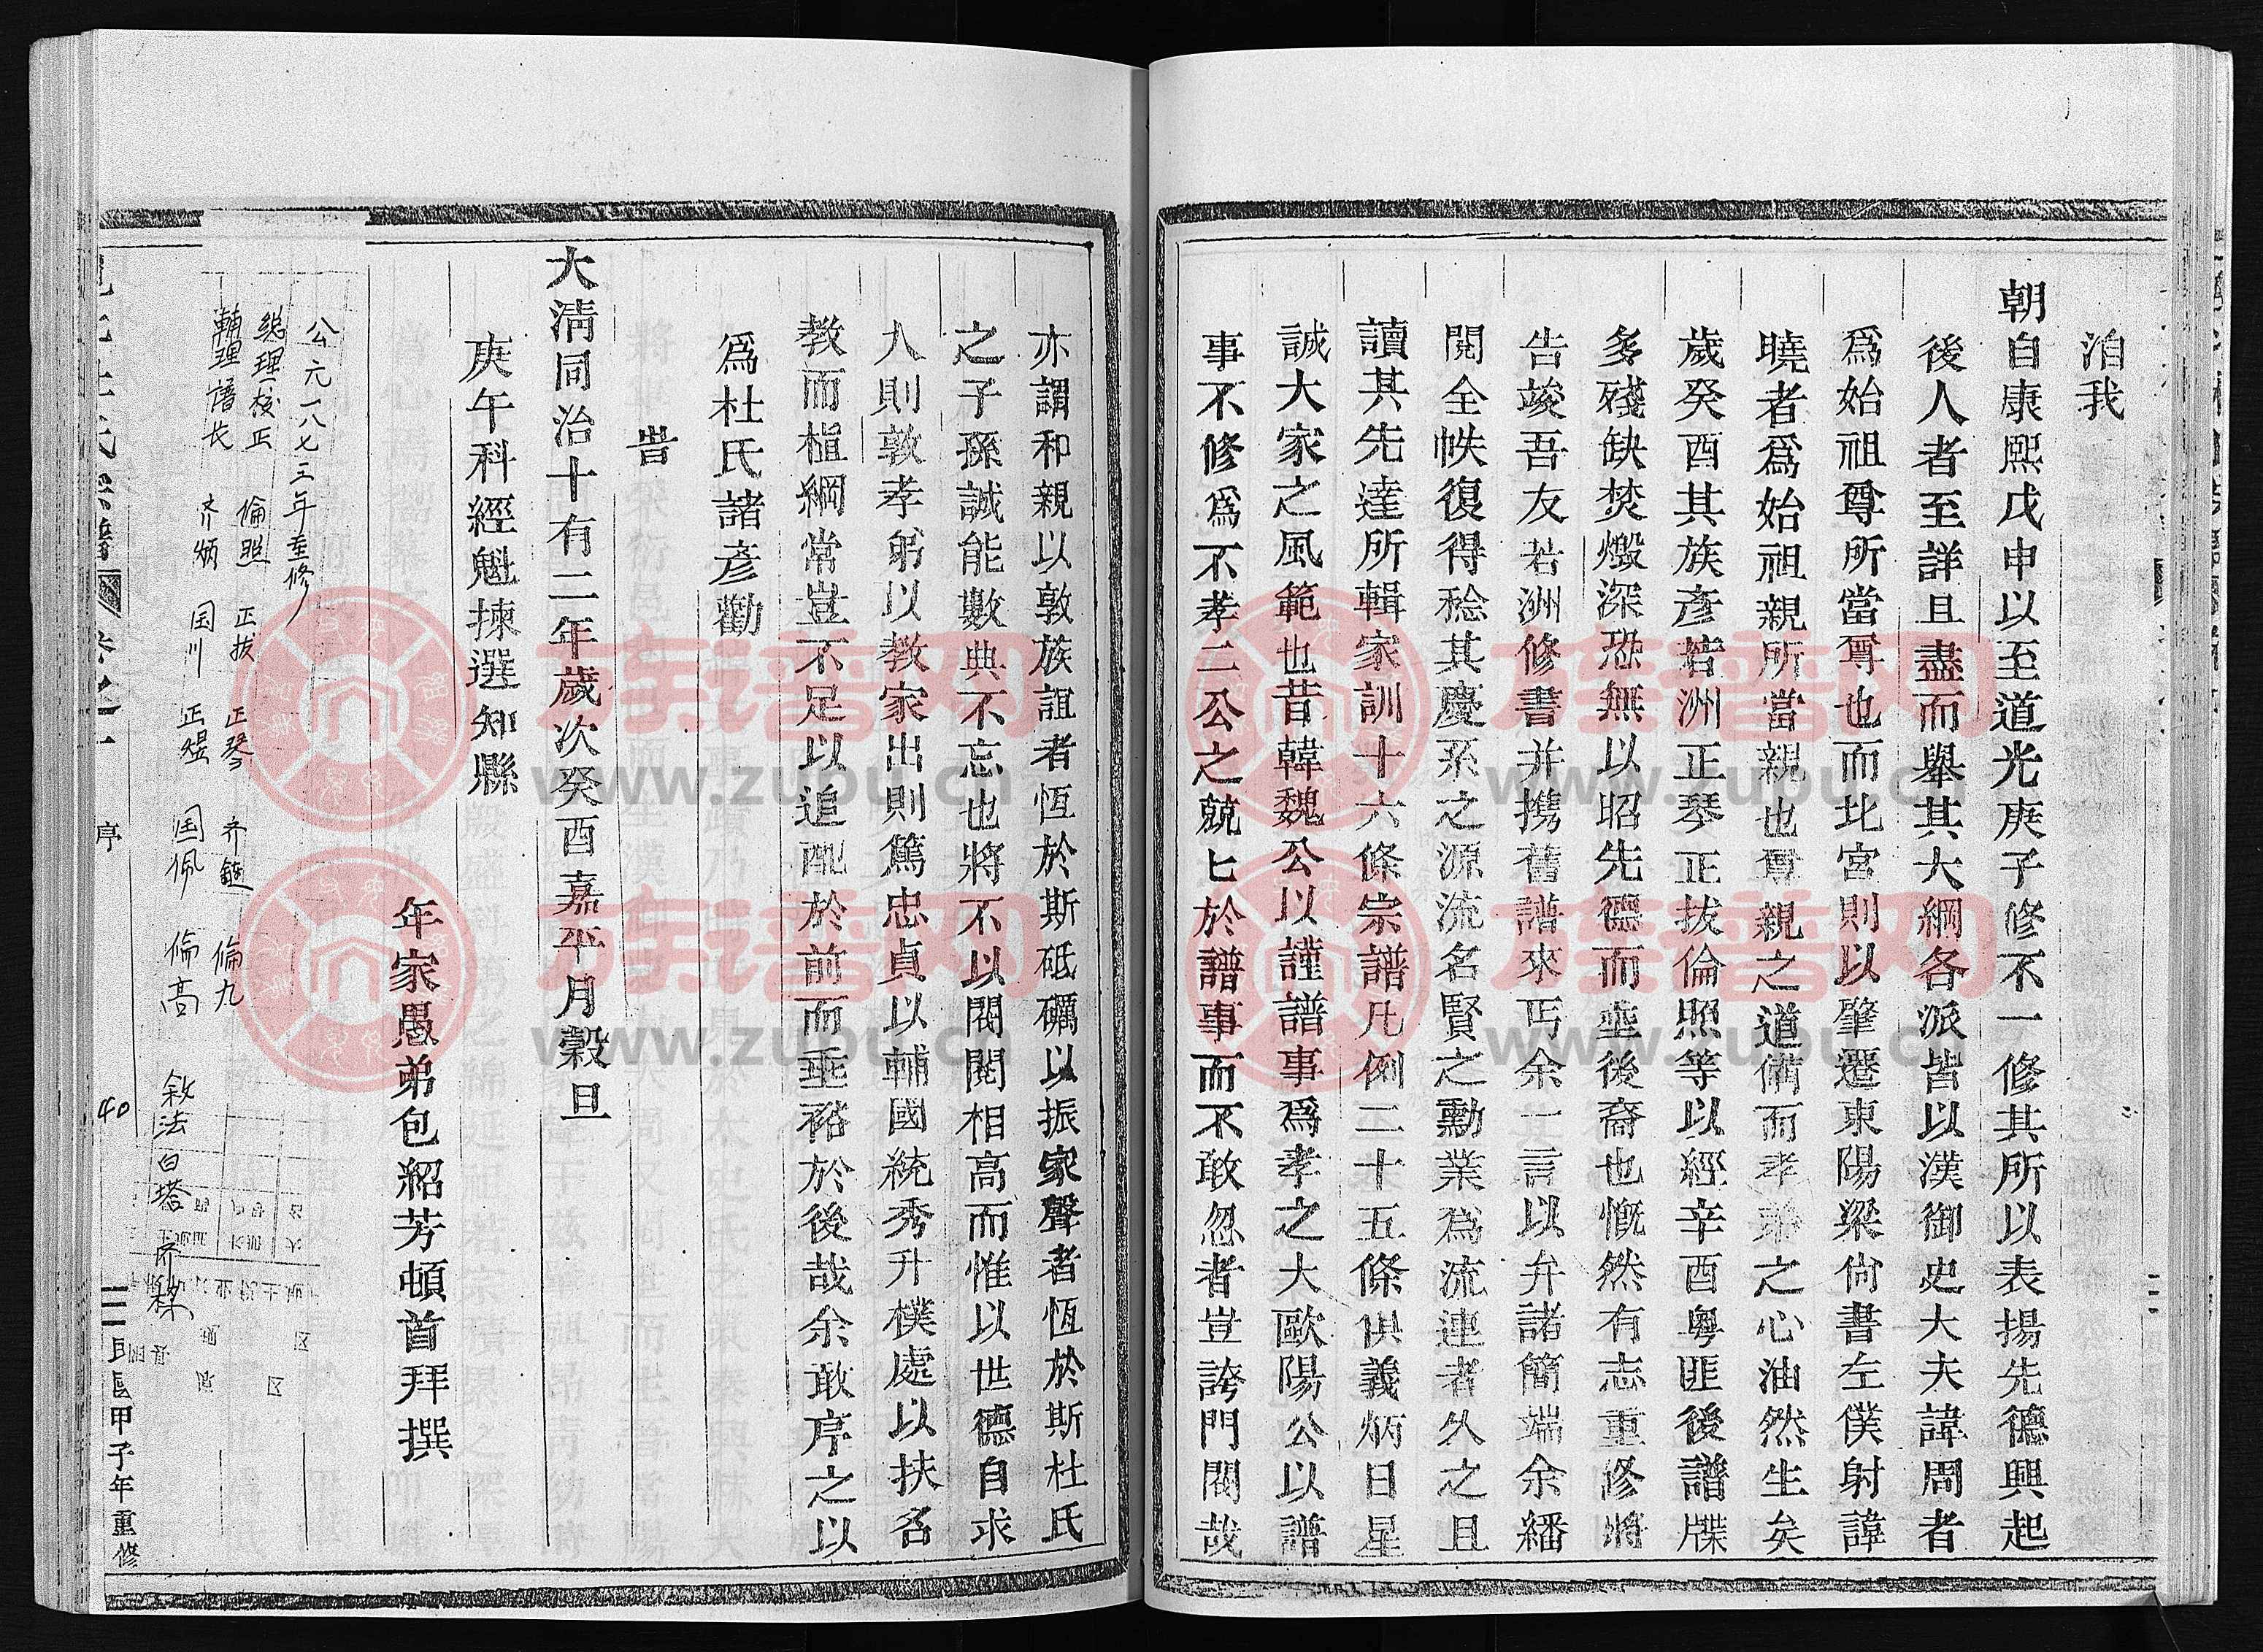 洎我
朝自康熙戊申以至道光庚子修不一修其所以表揚先德興起
後人者至詳且盡而舉其大綱各派皆以漢御史大夫諱周者
爲始祖尊所當尊也而北宮則以肇遷東陽梁尙書左僕射諱
曉者爲始祖親所當親也尊親之道備而孝弟之心油然生矣
歲癸酉其族彥若洲正琴正拔倫照等以經辛酉粵匪後譜牒
多殘缺焚燬深恐無以昭先德而垂後裔也慨然有志重修將
告竣吾友若洲修書并携舊譜來丐余一言以弁諸簡端余繙
閱全帙復得稔其慶系之源流名賢之勳業爲流連者久之且
讀其先達所輯家訓十六條宗譜凡例二十五條俱義炳日星
誠大家之風範也昔韓魏公以謹譜事爲孝之大歐陽公以譜
事不修爲不孝二公之兢匕於譜事而不敢忽者豈誇門閥哉
亦謂和親以敦族誼者恆於斯砥礪以振家聲者恆於斯杜氏
之子孫誠能數典不忘也將不以閥閱相高而惟以世德自求
入則敦孝弟以教家出則篤忠貞以輔國統秀升樸處以扶名
教而植綱常豈不足以追配於前而垂裕於後哉余敢序之以
爲杜氏諸彥勸
旹
大清同治十有二年歲次癸酉嘉平月穀旦
庚午科經魁揀選知縣
年家愚弟包紹芳頓首拜撰
公元一八七三年重修
总理校正 倫照 正拔 正琴 齐鏈 倫九
輔理譜长 齐炳 国川 正煜 国佩 倫高 敘法白塔 齐稱
氏宗譜 卷之一 序 40 民國甲子年重修
www.zupu.cn
族谱网
www.zupu.cn
族谱网
www.zupu.cn
族谱网
www.zupu.cn
族谱网